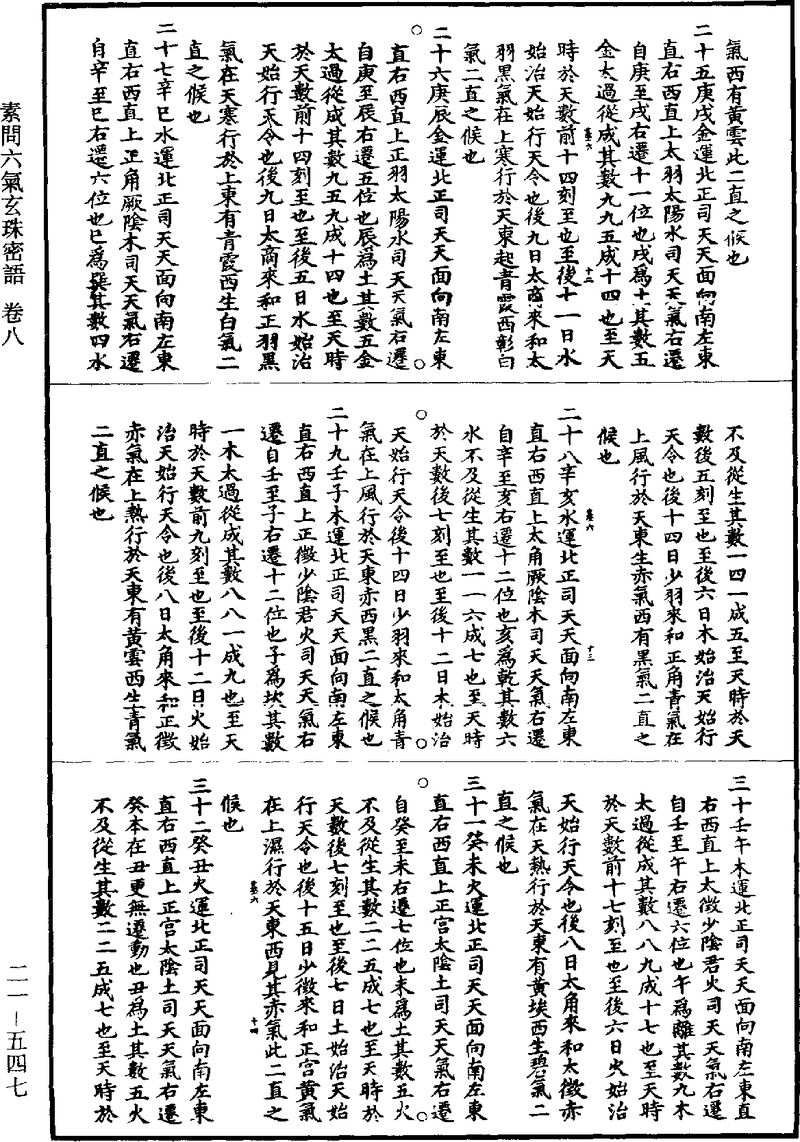 素問六氣玄珠密語 卷八
二一－五四七
氣西有黃雲此二直之候也
二十五庚戌金運北正司天天面向南左東
直右西直上太羽太陽水司天天氣右遷
自庚至戌右遷十一位也戌爲土其數五
金太過從成其數九九五成十四也至天
時於天數前十四刻至也至後十一日水
始治天始行天令也後九日太商來和太
羽黑氣在上寒行於天東起青霞西彰白
氣二直之候也
二十六庚辰金運北正司天天面向南左東
直右西直上正羽太陽水司天天氣右遷
自庚至辰右遷五位也辰爲土其數五金
太過從成其數九五九成十四也至天時
於天數前十四刻至也至後五日水始治
天始行天令也後九日太商來和正羽黑
氣在天寒行於上東有青霞西生白氣二
直之候也
二十七辛巳水運北正司天天面向南左東
直右西直上正角厥陰木司天天氣右遷
自辛至巳右遷六位也巳爲巽其數四水
不及從生其數一四一成五至天時於天
數後五刻至也至後六日木始治天始行
天令也後十四日少羽來和正角青氣在
上風行於天東生赤氣西有黑氣二直之
候也
二十八辛亥水運北正司天天面向南左東
直右西直上太角厥陰木司天天氣右遷
自辛至亥右遷十二位也亥爲乾其數六
水不及從生其數一一六成七也至天時
於天數後七刻至也至後十二日木始治
天始行天令後十四日少羽來和太角青
氣在上風行於天東赤西黑二直之候也
二十九壬子木運北正司天天面向南左東
直右西直上正徵少陰君火司天天氣右
遷自壬至子右遷十二位也子爲坎其數
一木太過從成其數八八一成九也至天
時於天數前九刻至也至後十二日火始
治天始行天令也後八日太角來和正徵
赤氣在上熱行於天東有黃雲西生青氣
二直之候也
三十壬午木運北正司天天面向南左東直
右西直上太徵少陰君火司天天氣右遷
自壬至午右遷六位也午爲離其數九木
太過從成其數八八九成十七也至天時
於天數前十七刻至也至後六日火始治
天始行天令也後八日太角來和太徵赤
氣在天熱行於天東有黃埃西生碧氣二
直之候也
三十一癸未火運北正司天天面向南左東
直右西直上正宮太陰土司天天氣右遷
自癸至未右遷七位也未爲土其數五火
不及從生其數二二五成七也至天時於
天數後七刻至也至後七日土始治天始
行天令也後十五日少徵來和正宮黃氣
在上濕行於天東西見其赤氣此二直之
候也
三十二癸丑火運北正司天天面向南左東
直右西直上正宮太陰土司天天氣右遷
癸本在丑更無遷動也丑爲土其數五火
不及從生其數二二五成七也至天時於
卷六
十二
卷六
十三
卷六
十四